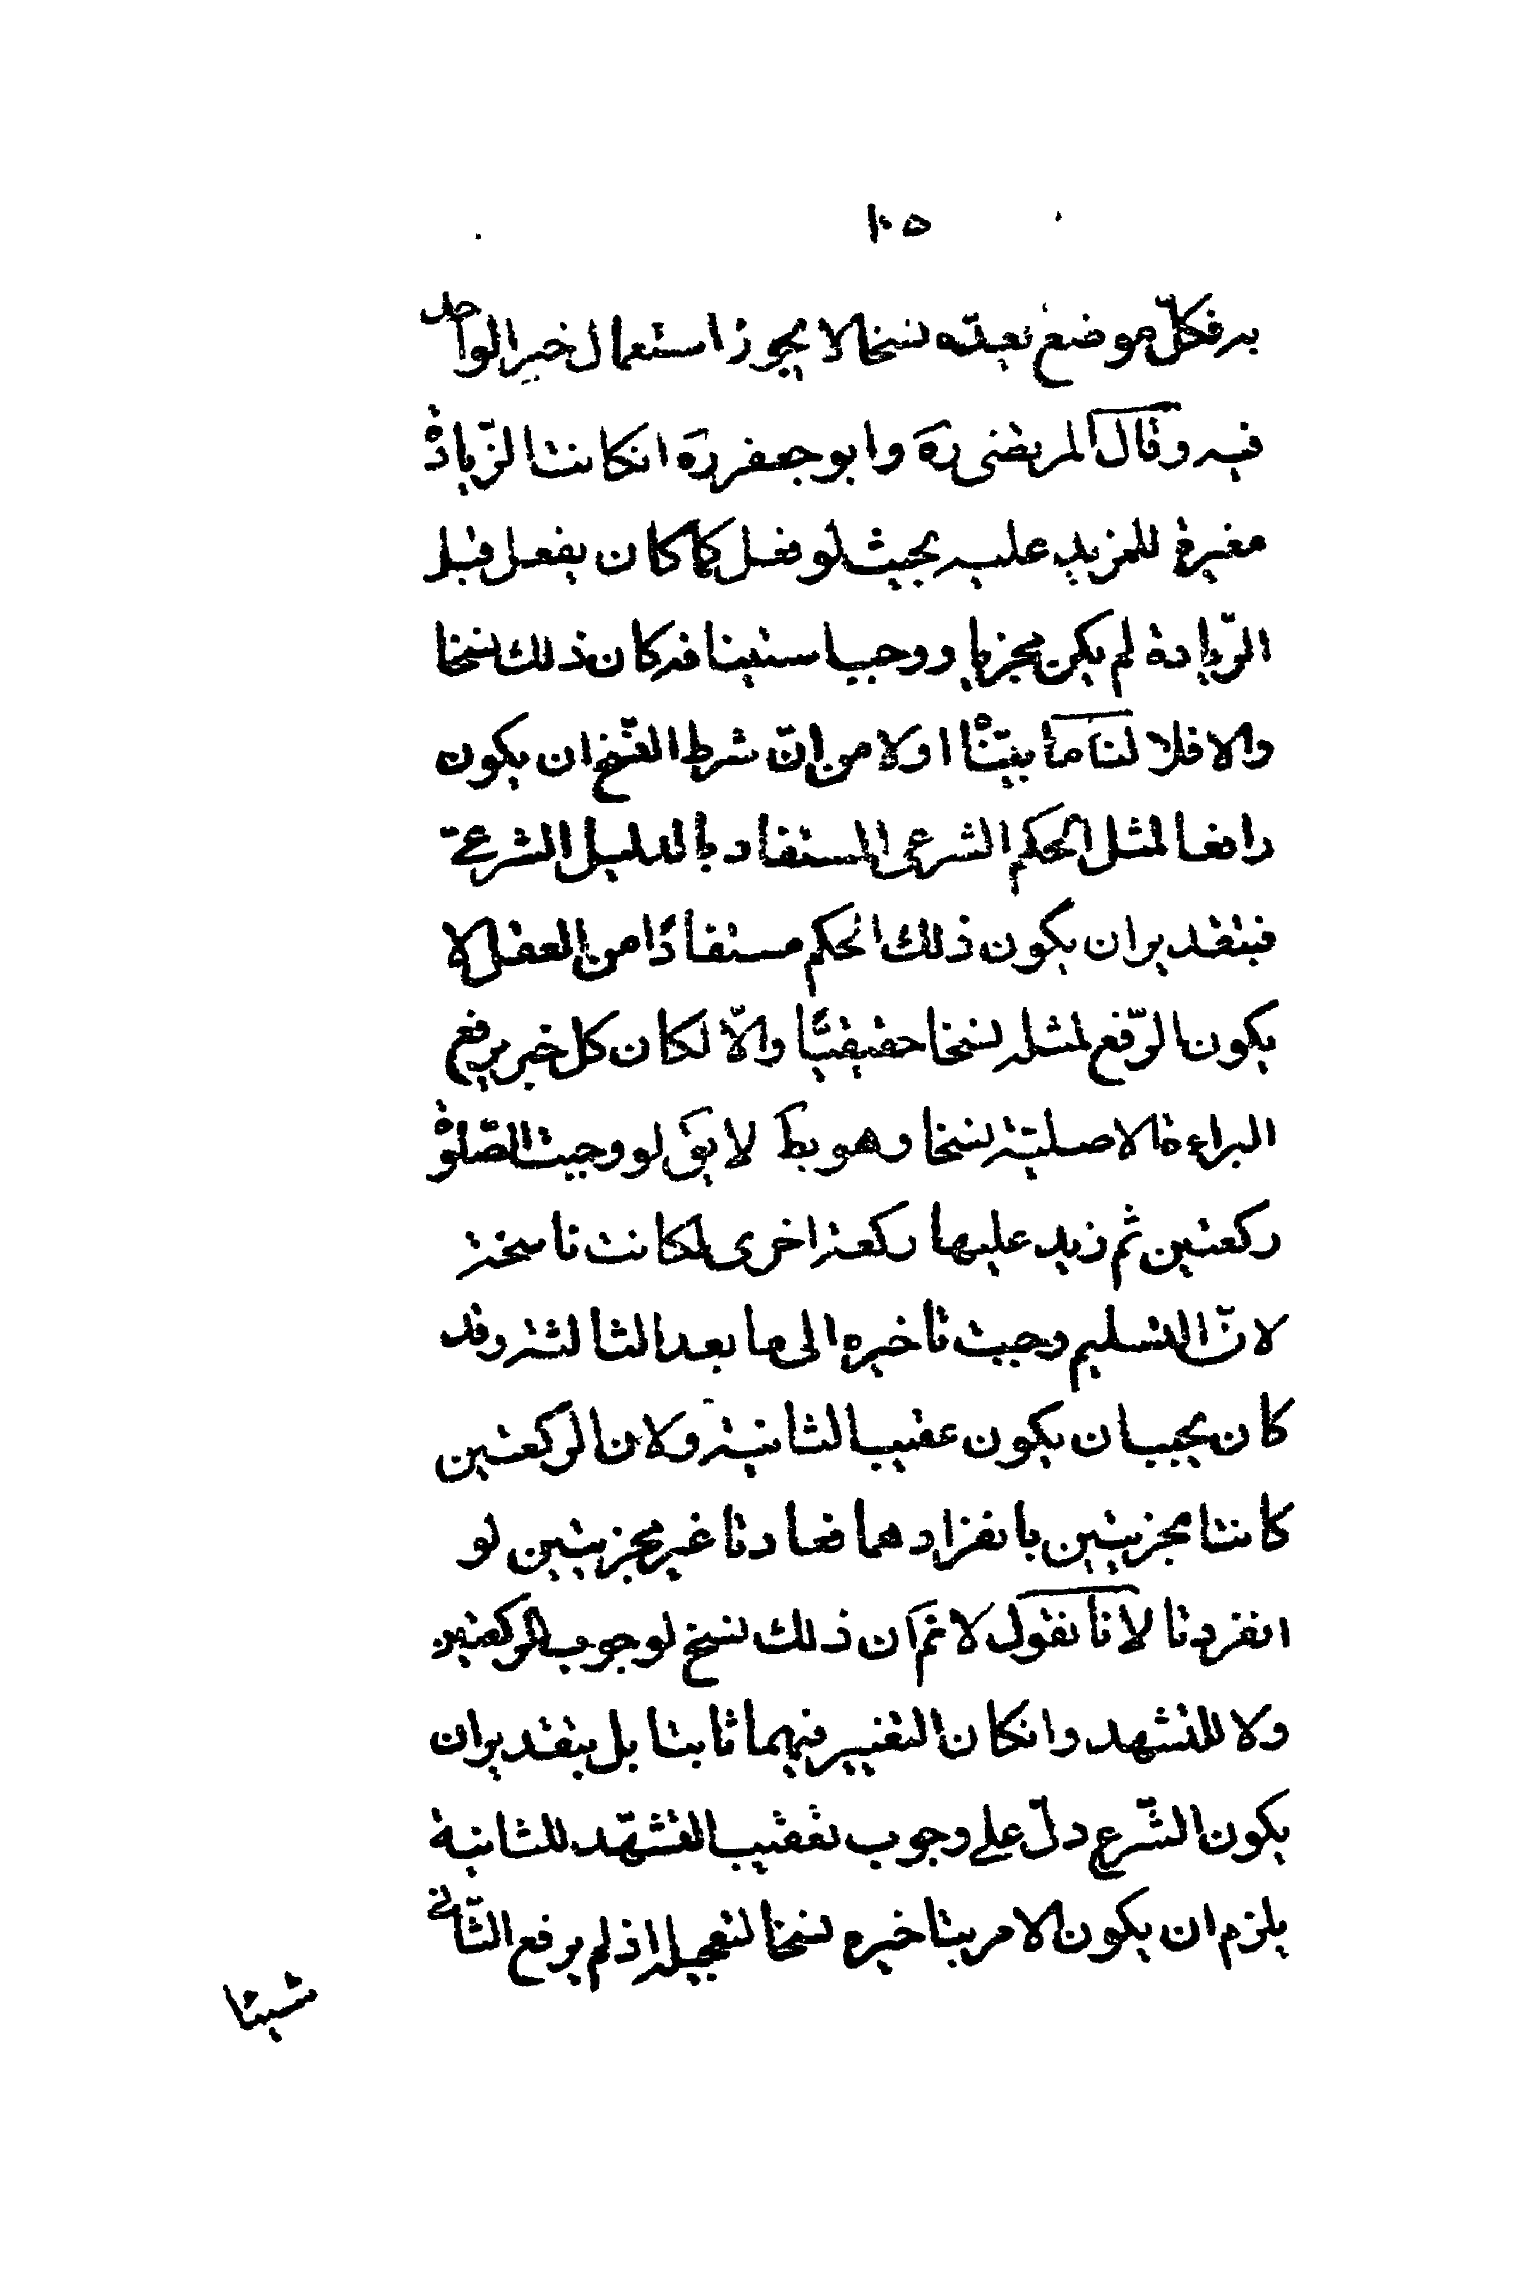 ١٠٥
به فكلّ موضع نعدّه نسخا لا يجوز استعمال خبر الواحد
فيه وقال المرتضى ره وابو جعفر ره ان كانت الزّيادة
مغيرة للمزيد عليه بحيث لو فعل كما كان يفعل قبل
الزّيادة لم يكن مجزيا ووجب استينافه كان ذلك نسخا
والا فلا لنا ما بيّنّاه اولا من انّ شرط النّسخ ان يكون
رافعا لمثل الحكم الشرعى المستفاد بالدليل الشرعى
فبتقدير ان يكون ذلك الحكم مستفادًا من العقل لا
يكون الرّفع لمثله نسخا حقيقيًّا والّا لكان كل خبر يرفع
البراءة الاصليّة نسخا وهو بط لا يق لو وجبت الصّلوة
ركعتين ثم زيد عليها ركعة اخرى لكانت ناسخة
لانّ التسليم وجب تاخيره الى ما بعد الثالثة وقد
كان يجب ان يكون عقيب الثانية ولان الركعتين
كانتا مجزيتين بانفرادهما فعادتا غير مجزيتين لو
انفردتا لانا نقول لا نم ان ذلك نسخ لوجوب الركعتين
ولا للتشهد وان كان التغيير فيهما ثابتا بل بتقدير ان
يكون الشّرع دلّ على وجوب تعقيب التشهّد للثانية
يلزم ان يكون الامر بتاخيره نسخا لتعجيله اذ لم يرفع الثّانى
شيئا